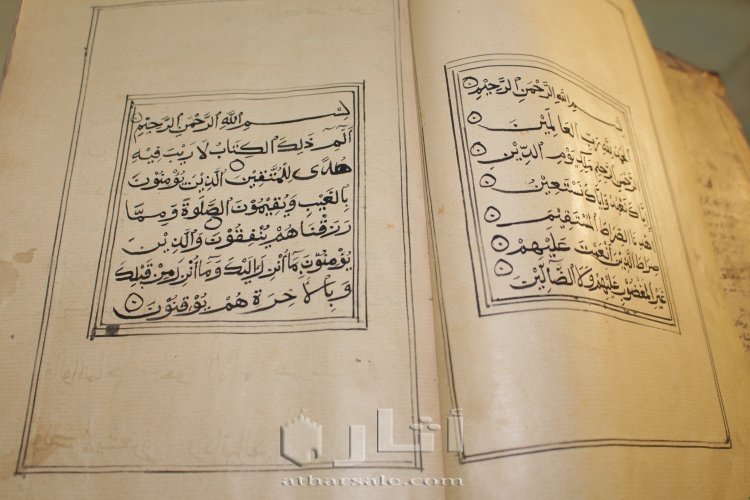 بسم الله الرحمن الرحيم
الحمد لله رب العالمين
الرحمن الرحيم ملك يوم الدين
إياك نعبد وإياك نستعين
اهدنا الصراط المستقيم
صراط الذين أنعمت عليهم
غير المغضوب عليهم ولا الضالين
بسم الله الرحمن الرحيم
الم ذلك الكتاب لا ريب فيه
هدى للمتقين الذين يؤمنون
بالغيب ويقيمون الصلوة ومما
رزقناهم ينفقون والذين
يؤمنون بما أنزل إليك وما أنزل من قبلك
وبالآخرة هم يوقنون
أثار
atharsale.com